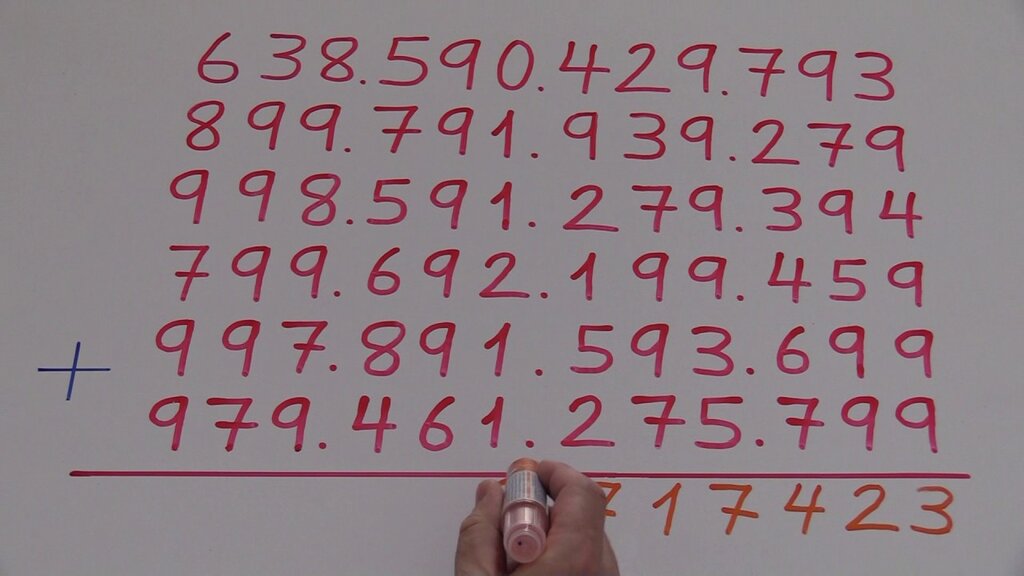 638.590.429.793
899.791.939.279
998.591.279.394
799.692.199.459
+ 997.891.593.699
979.461.275.799
717423